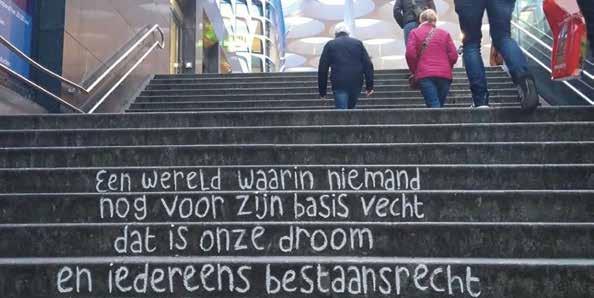 Een wereld waarin niemand
nog voor zijn basis vecht
dat is onze droom
en iedereens bestaansrecht